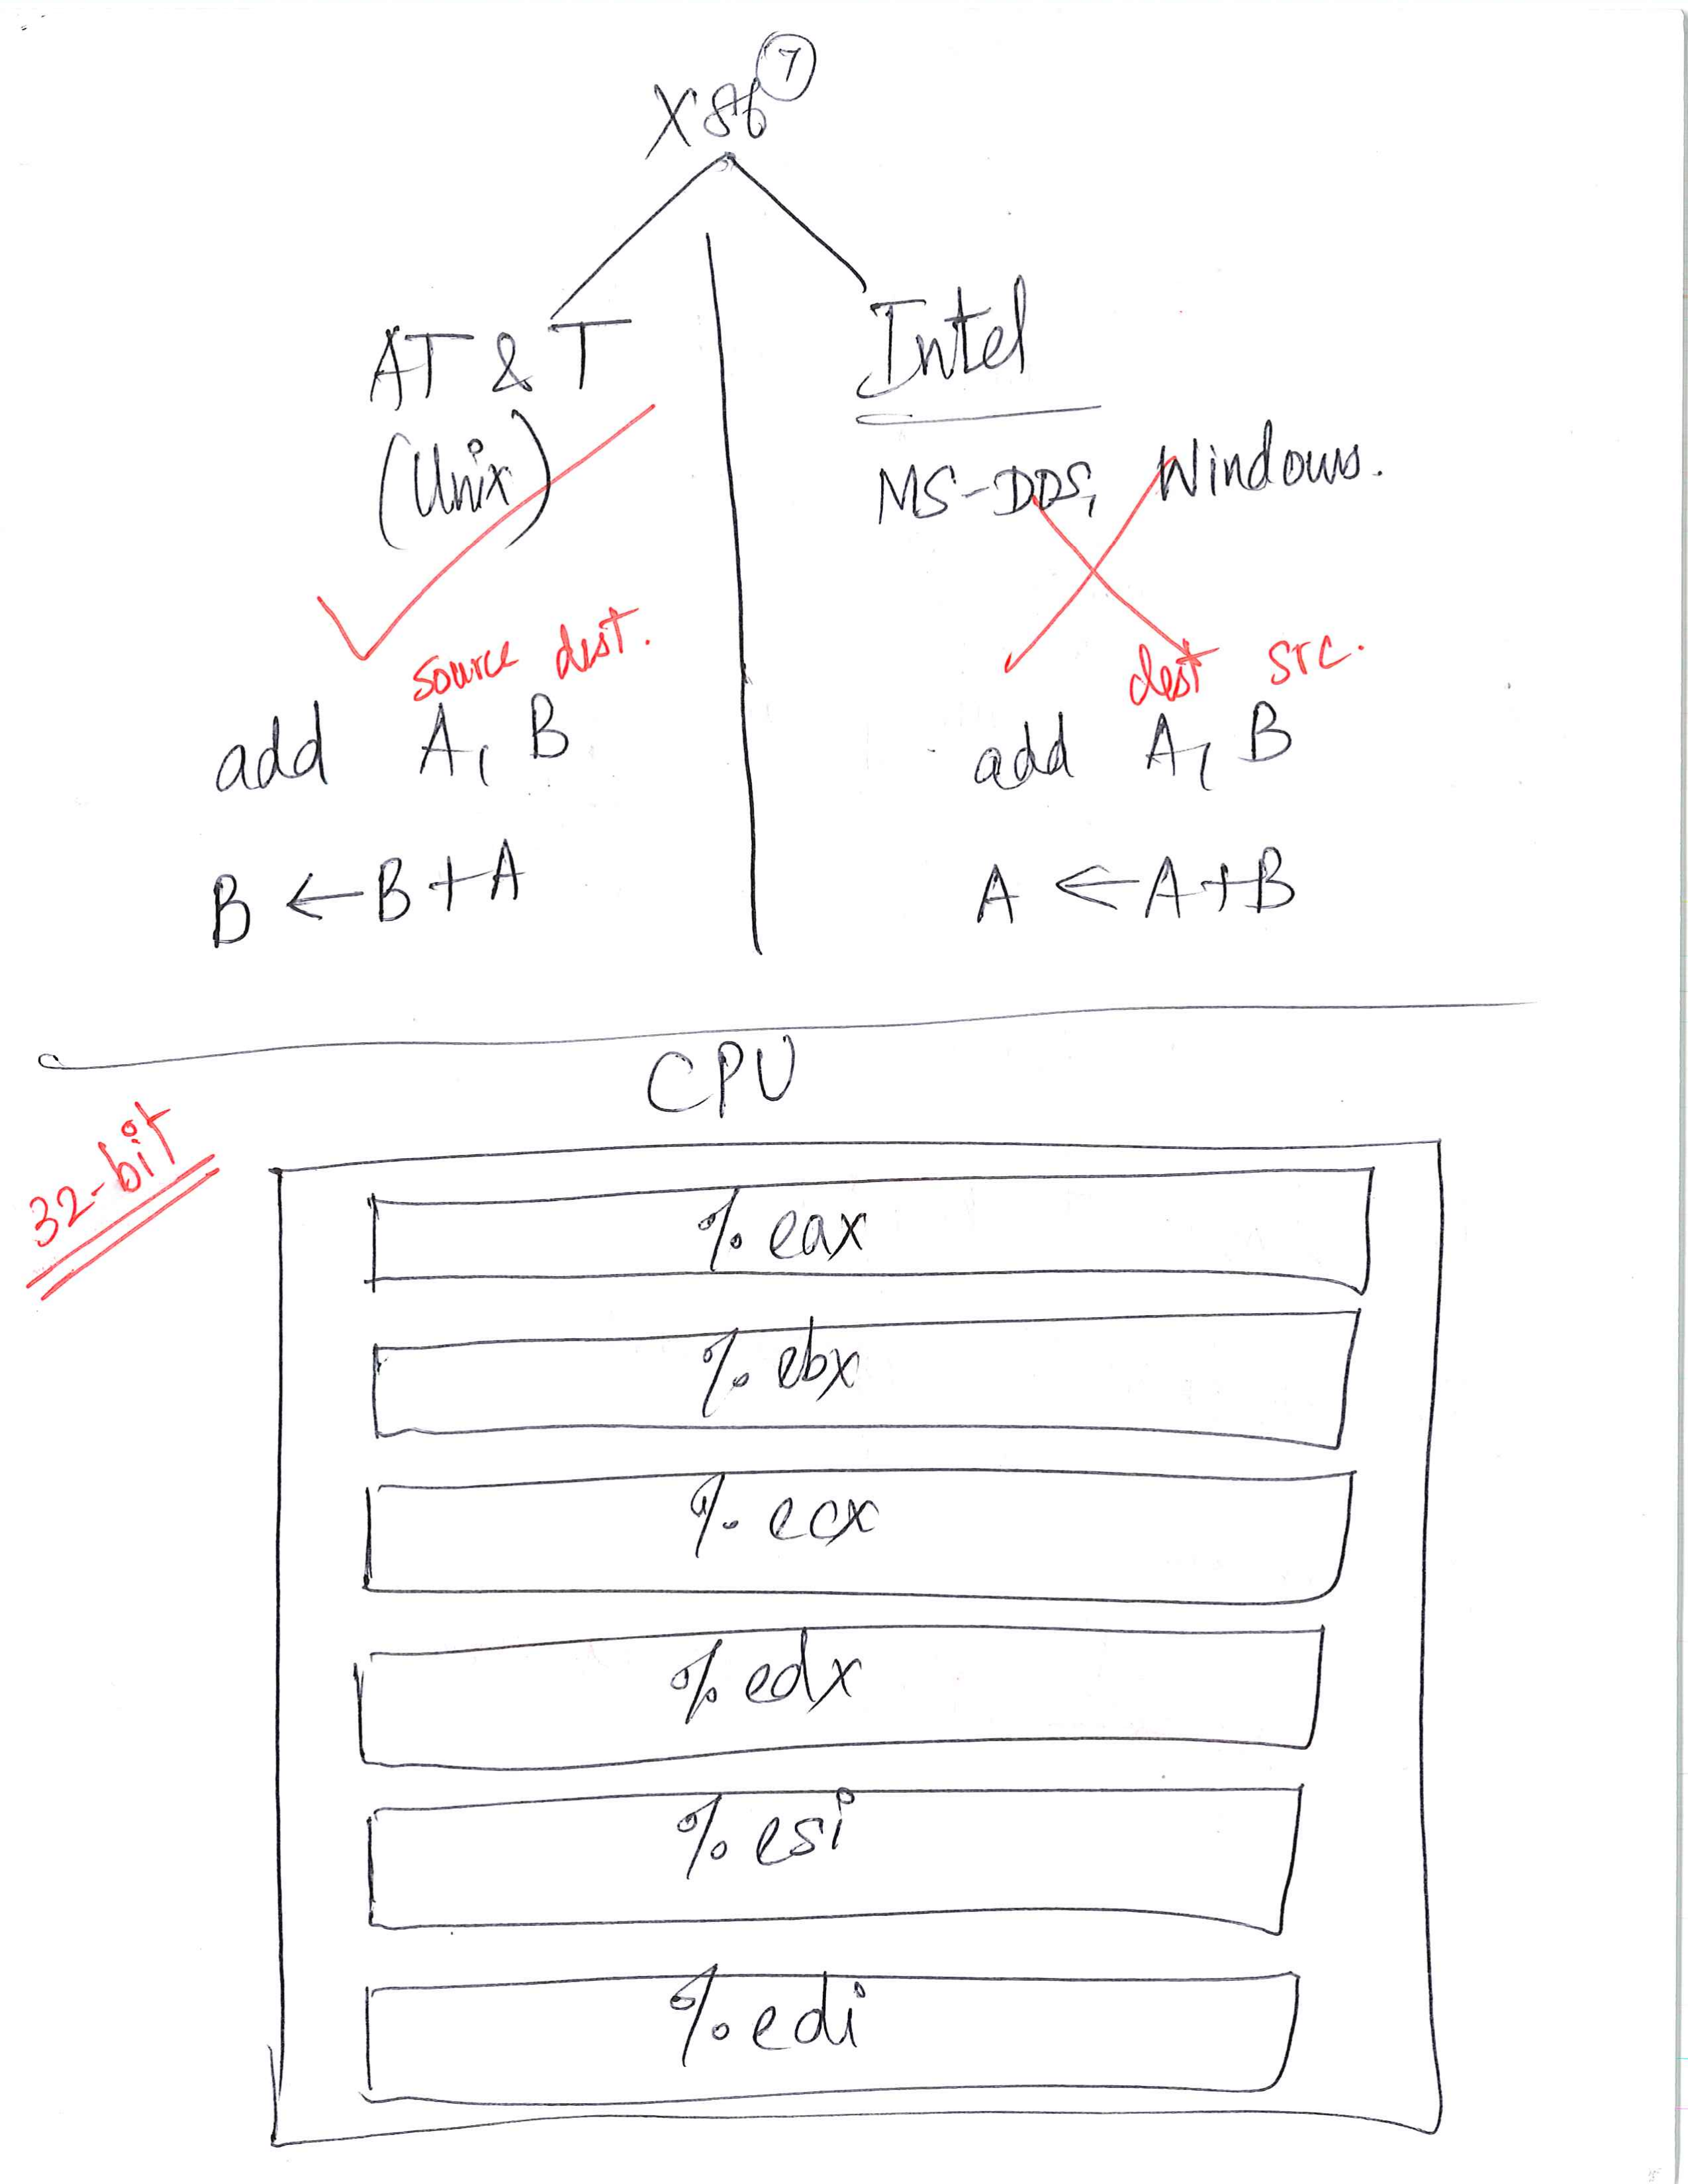 7
X86
AT & T
(Unix)
Intel
MS-DOS, Windows.
source dest.
add A, B
B ← B + A
dest src.
add A, B
A ← A + B
CPU
32-bit
% eax
% ebx
% ecx
% edx
% esi
% edi